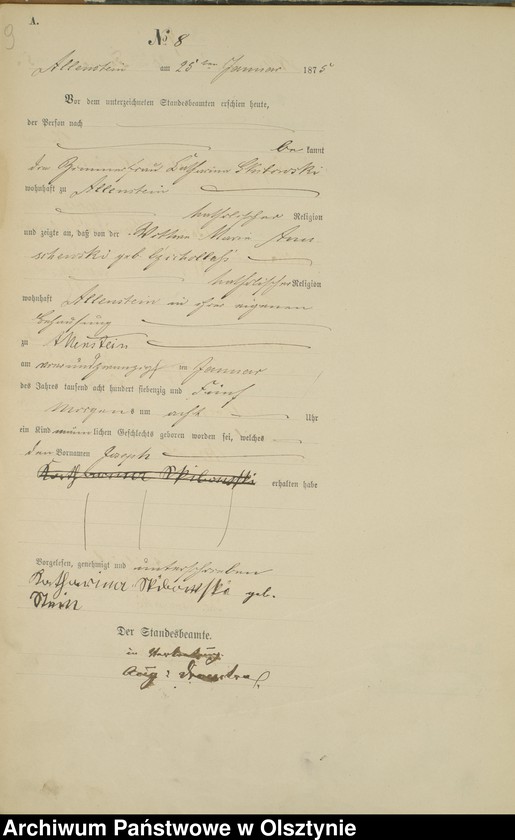 9
A.
№ 8
Allenstein am 25ten Januar 1875
Vor dem unterzeichneten Standesbeamten erschien heute,
der Person nach
be kannt
die Catharina Skibowski
wohnhaft zu Allenstein
katholischer Religion
und zeigte an, daß von der Marie
geb.
katholischer Religion
wohnhaft Allenstein in ihrer eigenen
Behausung
zu Allenstein
am ten Januar
des Jahres tausend acht hundert siebenzig und Fünf
Morgens um acht Uhr
ein Kind männlichen Geschlechts geboren worden sei, welches
den Vornamen Joseph
Katharina Skibowski erhalten habe
Vorgelesen, genehmigt und unterschrieben
Katharina Skibowski geb.
Stein
Der Standesbeamte.
in Vertretung
Aug:
Archiwum Państwowe w Olsztynie